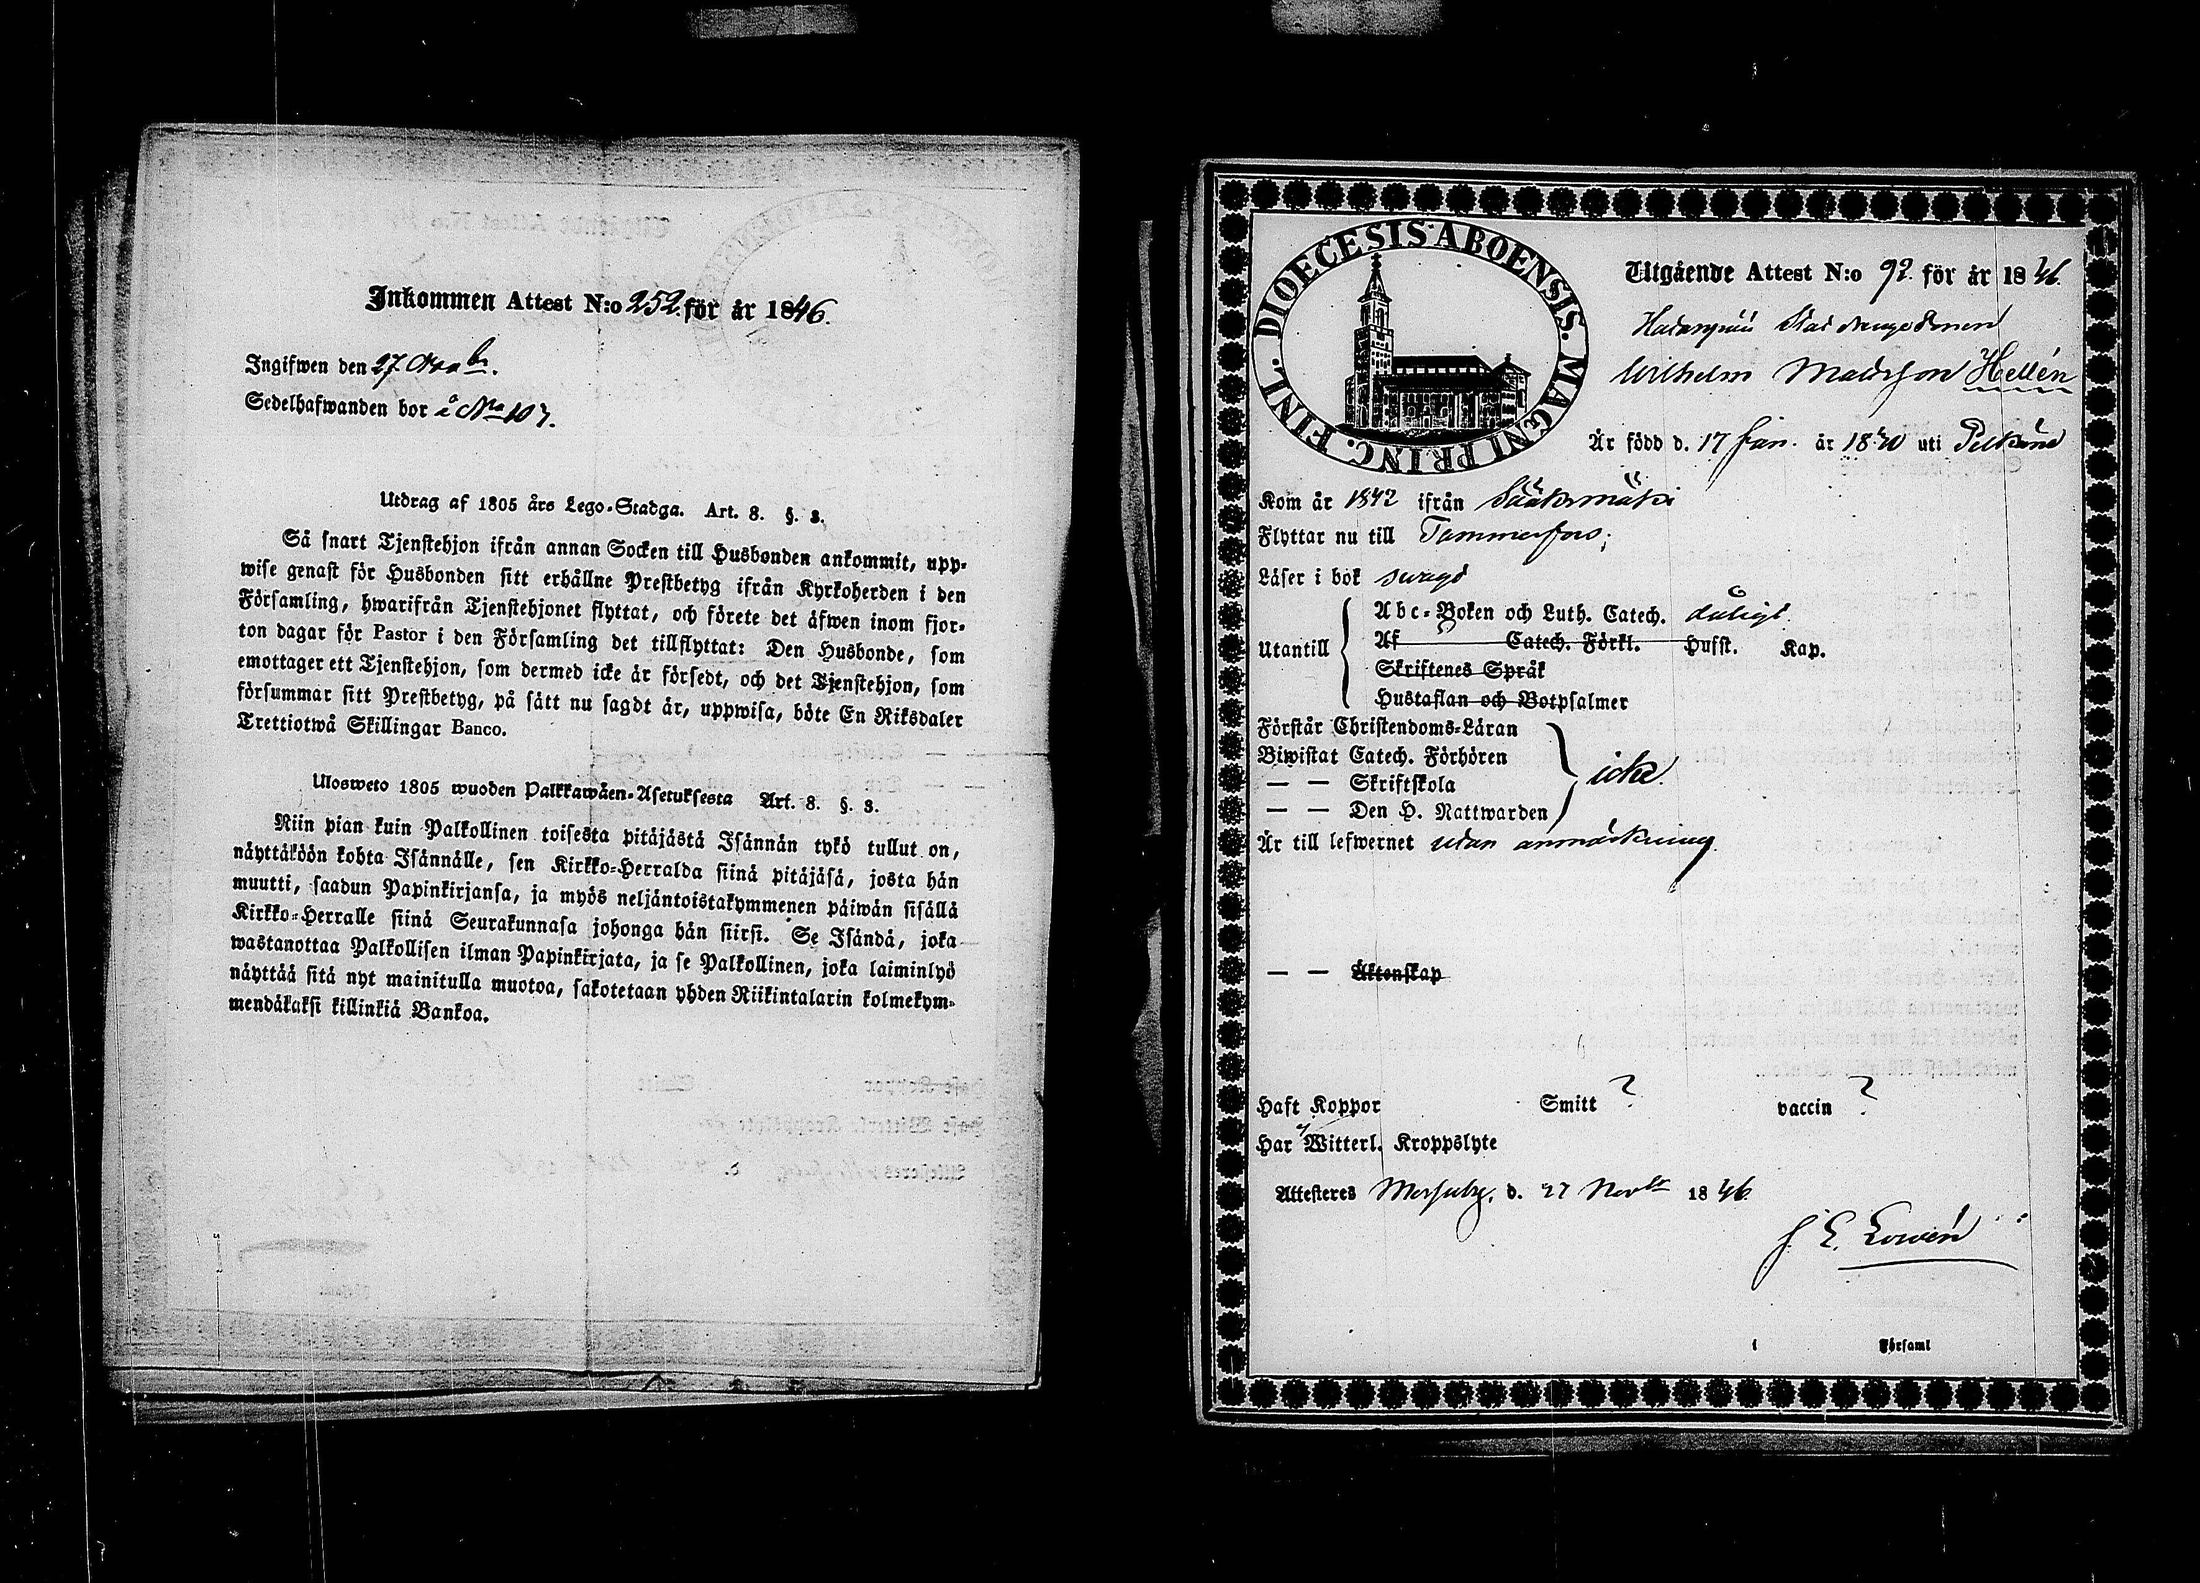 Inkommen Attest N:o 252. för år 1846.
Ingifwen den 27
Sedelhafwanden bor å No 107.
Utdrag af 1805 års Lego-Stadga. Art. 8. §. 8.
Så snart Tjenstehjon ifrån annan Socken till Husbonden ankommit, upp-
wise genast för Husbonden sitt erhållne Prestbetyg ifrån Kyrkoherden i den
Församling, hwarifrån Tjenstehjonet flyttat, och förete det äfwen inom fjor-
ton dagar för Pastor i den Församling det tillflyttat: Den Husbonde, som
emottager ett Tjenstehjon, som dermed icke är försedt, och det Tjenstehjon, som
försummar sitt Prestbetyg, på sätt nu sagdt är, uppwisa, böte En Riksdaler
Trettiotwå Skillingar Banco.
Ulosweto 1805 wuoden Palkkawäen-Asetuksesta Art. 8. §. 8.
Niin pian kuin Palkollinen toisesta pitäjästä Isännän tykö tullut on,
näyttäköön kohta Isännälle, sen Kirkko-Herralda siinä pitäjäsä, josta hän
muutti, saadun Papinkirjansa, ja myös neljäntoistakymmenen päiwän sisällä
Kirkko-Herralle siinä Seurakunnasa johonga hän siirsi. Se Isändä, joka
wastanottaa Palkollisen ilman Papinkirjata, ja se Palkollinen, joka laiminlyö
näyttää sitä nyt mainitulla muotoa, sakotetaan yhden Riikintalarin kolmekym-
mendäkaksi killinkiä Bankoa.
DIOECESIS ABOENSIS. MAGNI PRINC. FINL.
Utgående Attest N:o 92. för år 1846.
Wilhelm Matsson Hellén
Är född d. 17 Jan. år 18 uti Pelkäne
Kom år 1842 ifrån Sääksmäki
Flyttar nu till Tammerfors;
Läser i bok swagt
Utantill
Abc-Boken och Luth. Catech. dåligt.
Af Catech. Förkl. Hufst. Kap.
Skriftenes Språk
Hustaflan och Botpsalmer
Förstår Christendoms-Läran
Biwistat Catech. Förhören
— — Skriftskola
— — Den H. Nattwarden
icke.
Är till lefwernet utan anmärkning
— — Äktenskap
Haft Koppor Smitt ? vaccin ?
Har ej Witterl. Kroppslyte
Attesteres Messuby, d. 27 Novbr 1846
J. E. Lowén
i Församl